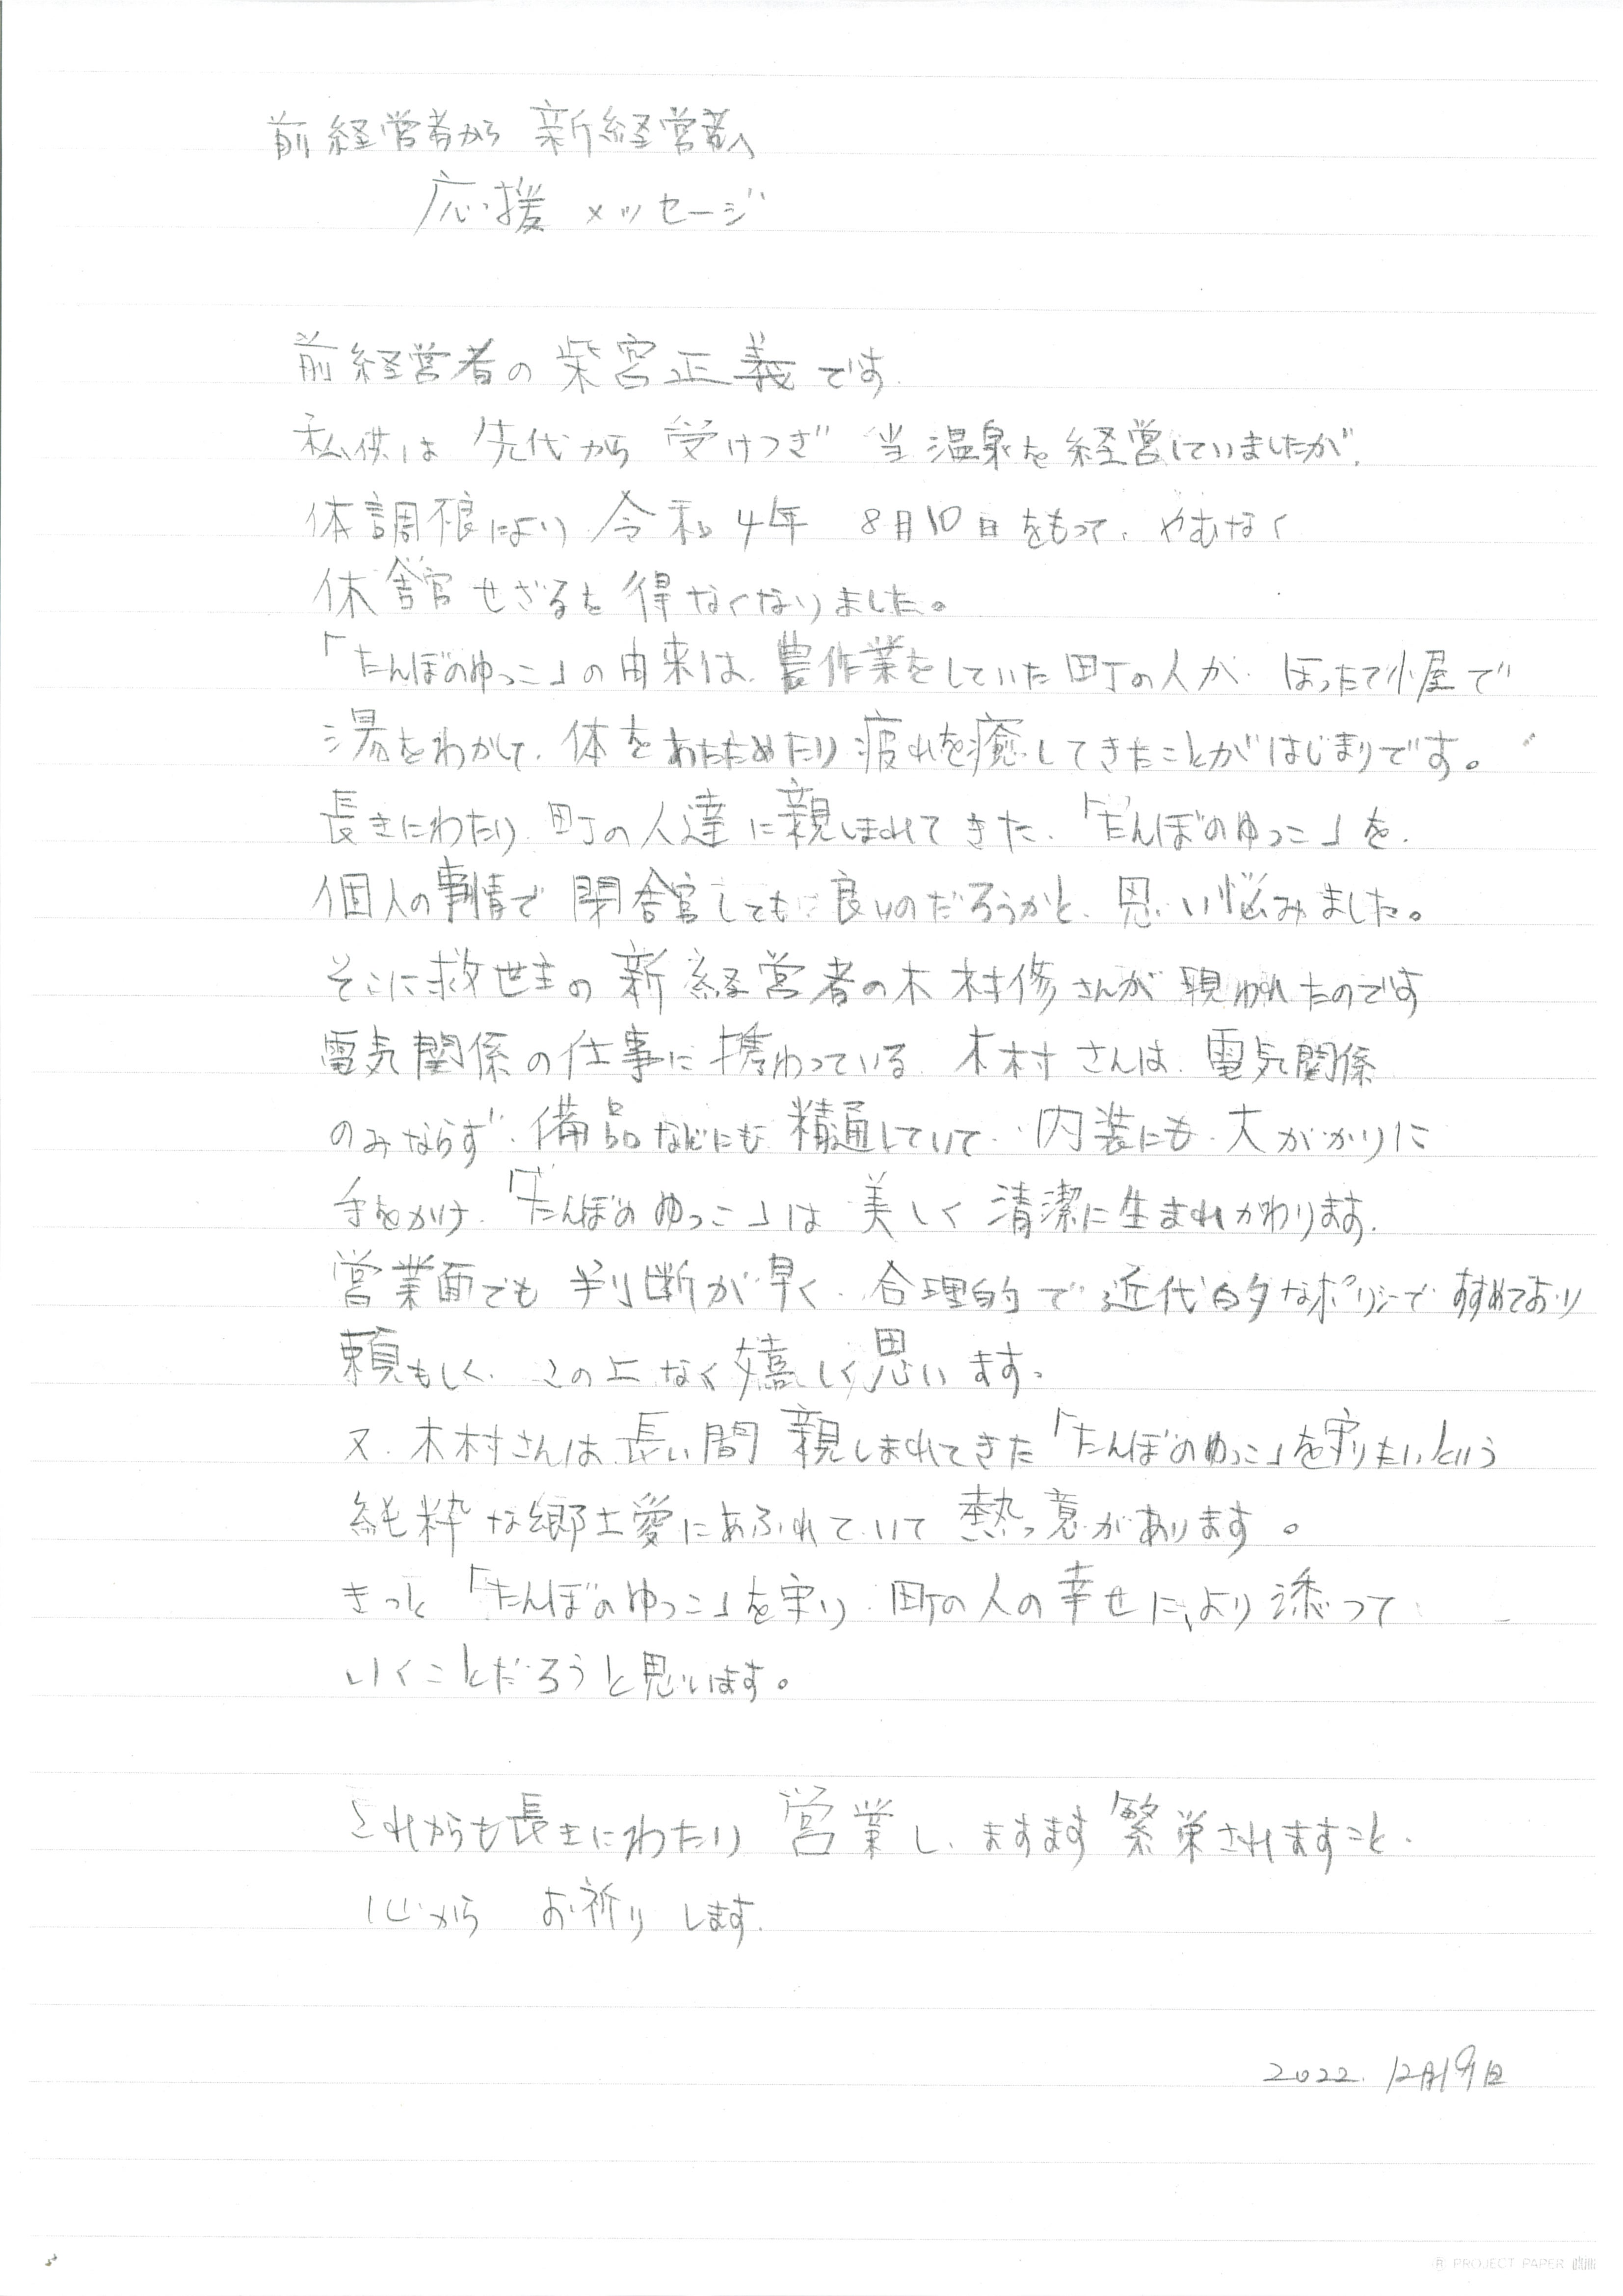 前経営者から 新経営者へ
応援 メッセージ
前経営者の 柴宮正義です.
私供は 先代から 受けつぎ 当温泉を経営していましたが、
体調不良により 令和4年 8月10日をもって、やむなく
休館せざるを得なくなりました。
「たんぼのゆっこ」の由来は、農作業をしていた町の人が、ほったて小屋で
湯をわかして、体をあたためたり疲れを癒してきたことがはじまりです。
長きにわたり、町の人達に親しまれてきた、「たんぼのゆっこ」を、
個人の事情で閉館しても良いのだろうかと、思い悩みました。
そこに救世主の新経営者の木村修さんが現われたのです
電気関係の仕事に携わっている 木村さんは、電気関係
のみならず、備品などにも精通していて、内装にも、大がかりに
手をかけ、「たんぼのゆっこ」は美しく清潔に生まれかわります.
営業面でも判断が早く、合理的で近代的なポリシーですすめており
頼もしく、この上なく嬉しく思います。
又、木村さんは長い間親しまれてきた「たんぼのゆっこ」を守りたいという
純粋な郷土愛にあふれていて熱意があります。
きっと「たんぼのゆっこ」を守り、町の人の幸せにより添って
いくことだろうと思います。
これからも長きにわたり営業し、ますます繁栄されますこと、
心から お祈りします.
2022. 12月19日
PROJECT PAPER